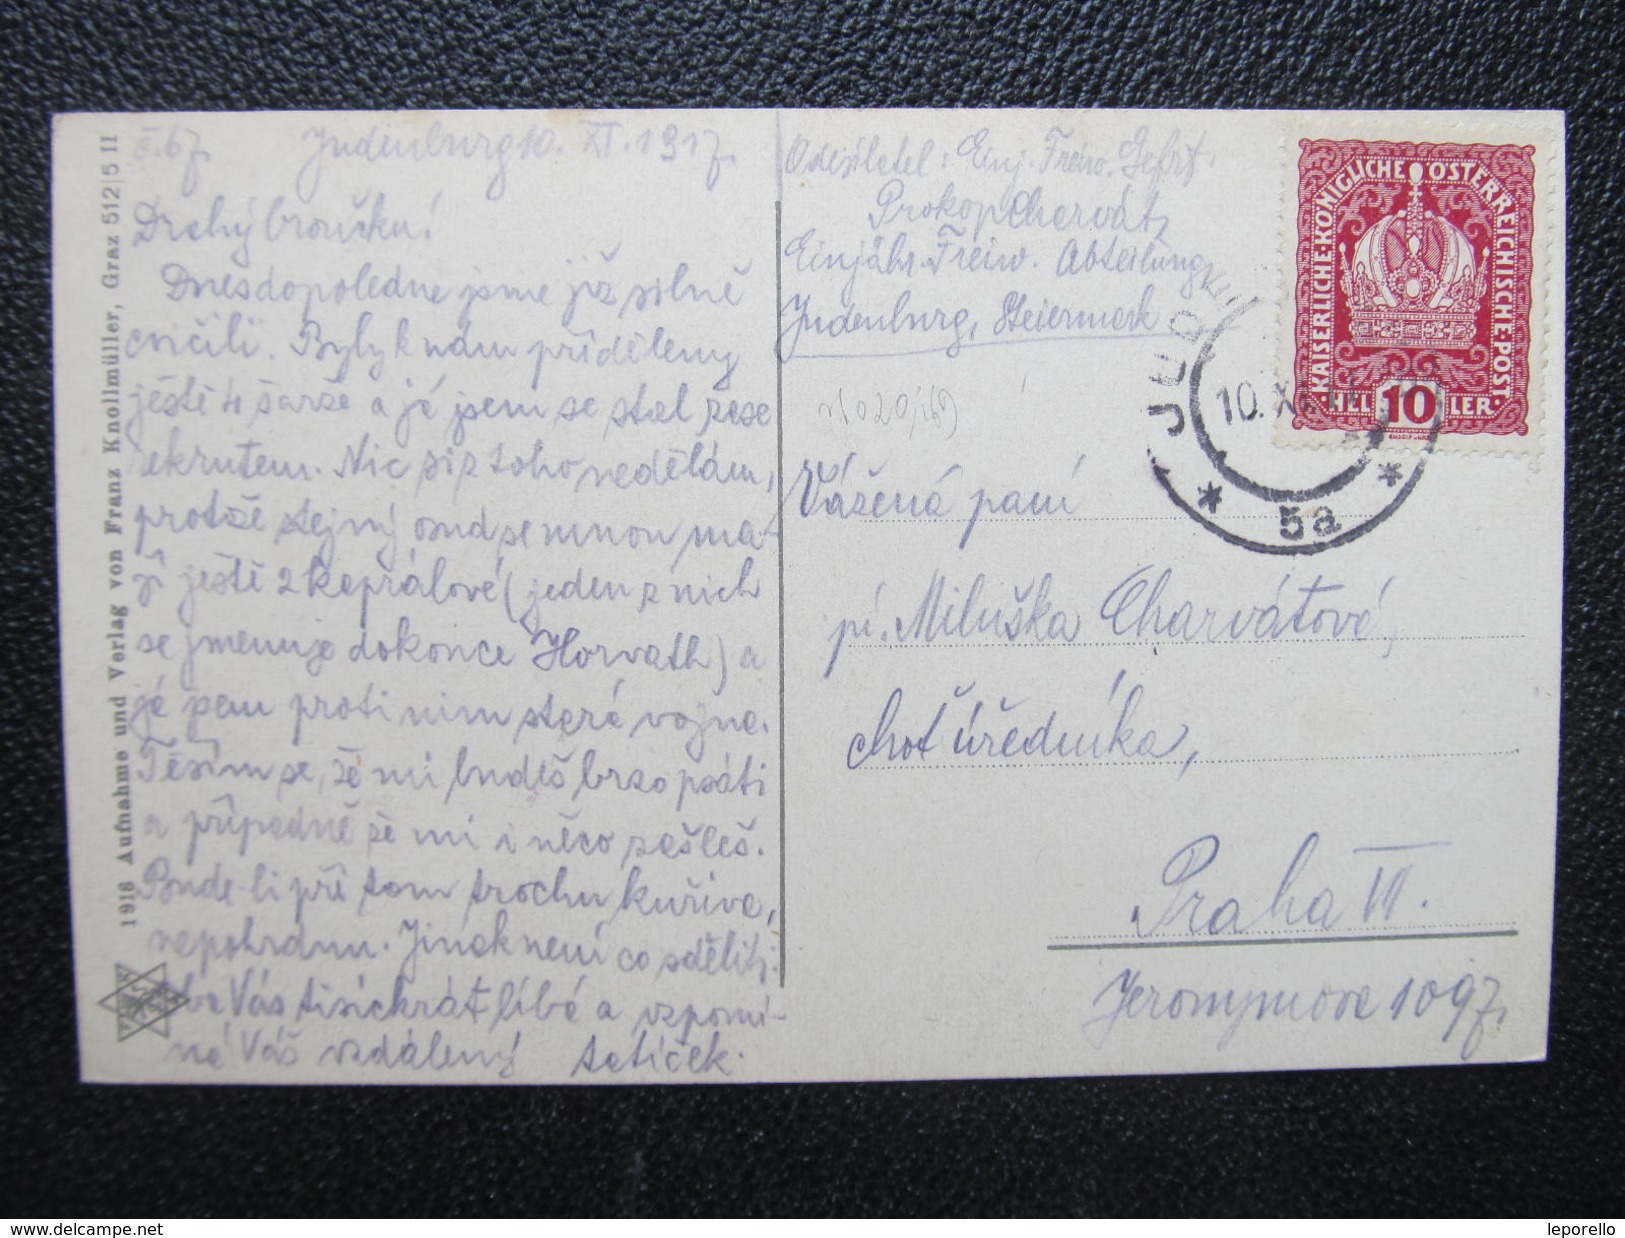 č.67. Judenburg 10. XI. 1917.
Drahý broučku!
Dnes dopoledne jsme již pilně
cvičili. Byly k nám přiděleny
ještě 4 šarže a já jsem se stal zase
rekrutem. Nic si z toho nedělám,
protože stejný osud se mnou ma-
jí ještě 2 kaprálové (jeden z nich
se jmenuje dokonce Horvath) a
já jsem proti nim stará vojna.
Těším se, že mi budeš brzo psáti
a případně že mi i něco zašleš.
Bude-li při tom trochu kuřiva,
nepohrdnu. Jinak není co sděliti.
Vás tisíckrát líbá a vzpomí-
ná Vás vzdálený tatíček.
Odesílatel: Einj. Freiw. Gefrt.
Prokop Charvát,
Einjähr. Freiw. Abteilung
Judenburg, Steiermark
Vážená paní
pí. Miluška Charvátová,
choť úředníka,
Praha VII.
Jeronymova 1097.
KAISERLICHE·KÖNIGLICHE ÖSTERREICHISCHE·POST·
HEL 10 LER·
JUD
10. XI
5a
1916 Aufnahme und Verlag von Franz Knollmüller, Graz 512|5 II
www.delcampe.net
leporello